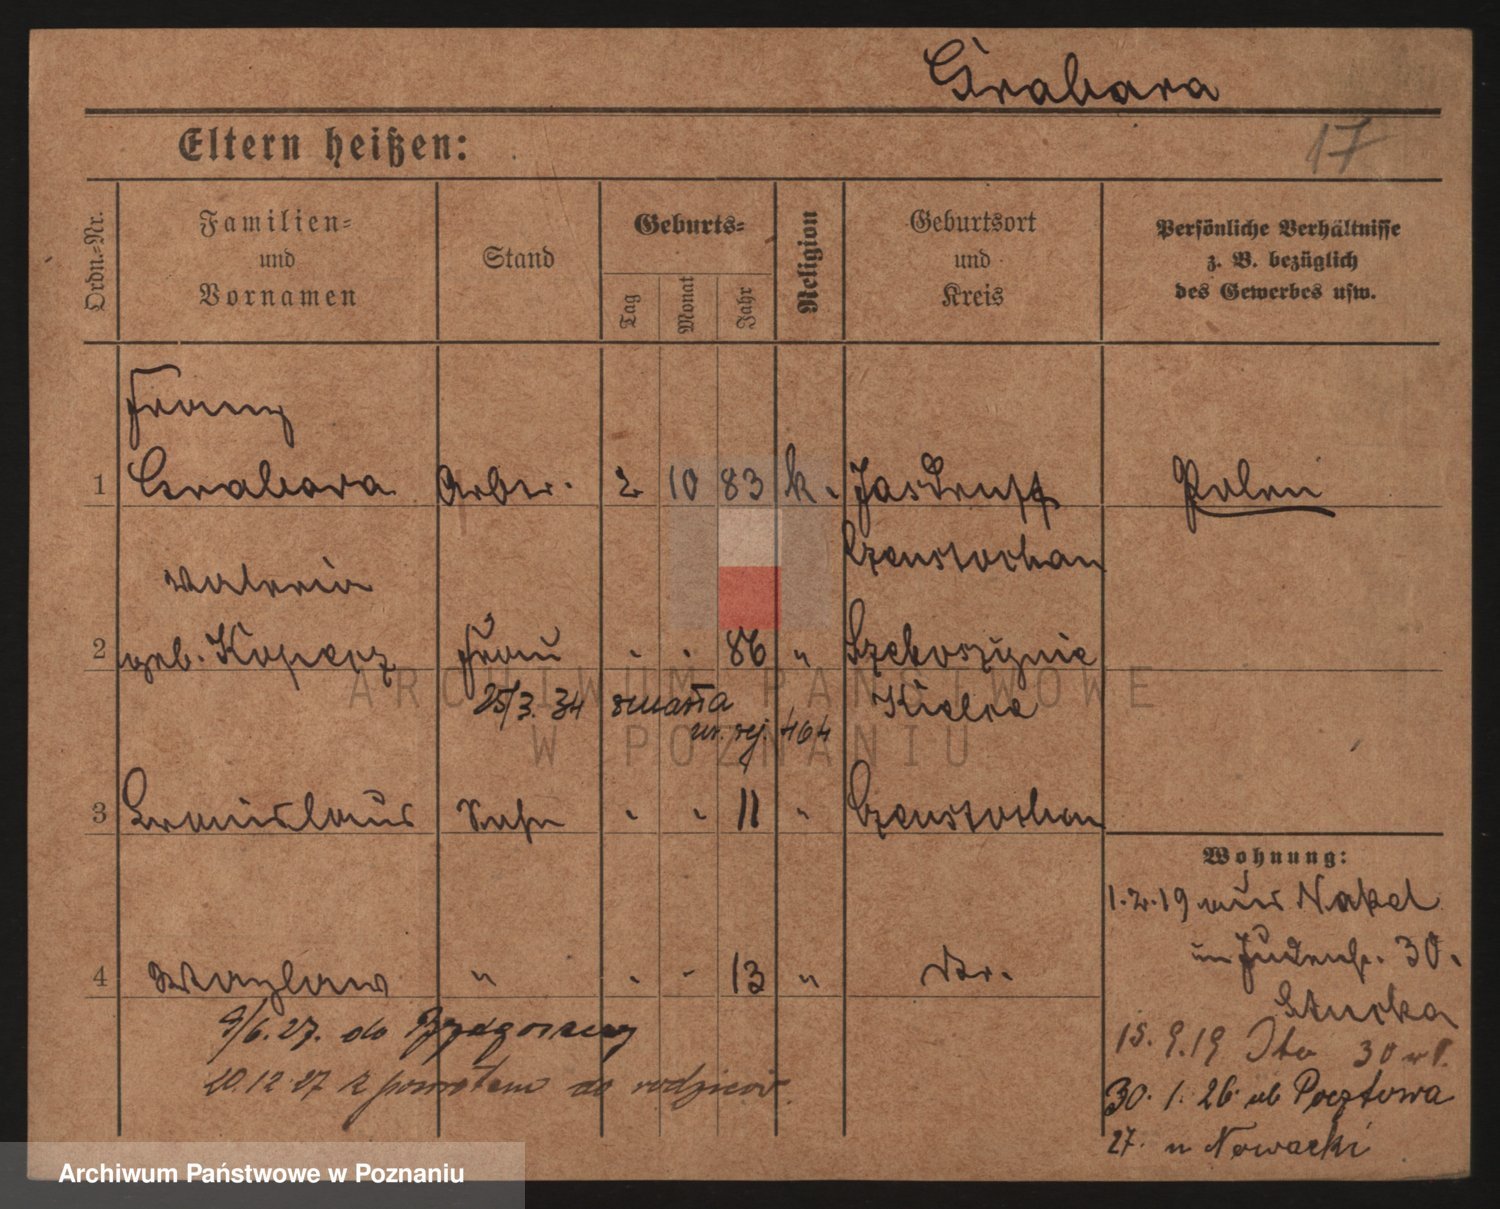 Grabara
17
Eltern heißen:
Ordn.-Nr.
Familien-
und
Vornamen
Stand
Geburts-
Tag
Monat
Jahr
Religion
Geburtsort
und
Kreis
Persönliche Verhältnisse
z. B. bezüglich
des Gewerbes usw.
Franz
1 Grabara Arbtr. 2 10 83 k. Polen
Czenstochau
Valeria
2 geb. Koperz Frau " " 86 "
Kielce
25/3. 34 zmarła
nr. rej. 464
3 Bronislaus Sohn " " 11 " Czenstochau
Wohnung:
1.2.19 aus Nakel
in Judenstr. 30.
4 Wazlaw " " " 13 "
9/6.27. do Bydgoszczy
15. 9.19 30
20.12.27 z powrotem do rodziców.
30. 1. 26. ul Pocztowa
27. u Nowacki
ARCHIWUM PAŃSTWOWE
W POZNANIU
Archiwum Państwowe w Poznaniu